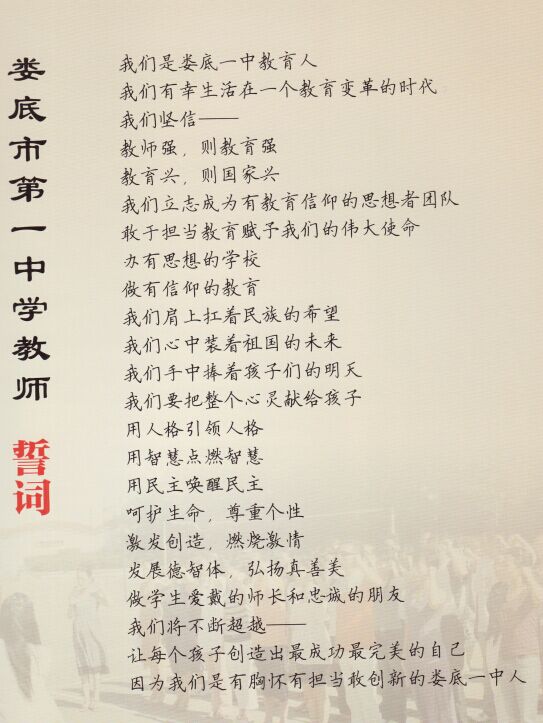 娄底市第一中学教师
誓词
我们是娄底一中教育人
我们有幸生活在一个教育变革的时代
我们坚信——
教师强，则教育强
教育兴，则国家兴
我们立志成为有教育信仰的思想者团队
敢于担当教育赋予我们的伟大使命
办有思想的学校
做有信仰的教育
我们肩上扛着民族的希望
我们心中装着祖国的未来
我们手中捧着孩子们的明天
我们要把整个心灵献给孩子
用人格引领人格
用智慧点燃智慧
用民主唤醒民主
呵护生命，尊重个性
激发创造，燃烧激情
发展德智体，弘扬真善美
做学生爱戴的师长和忠诚的朋友
我们将不断超越——
让每个孩子创造出最成功最完美的自己
因为我们是有胸怀有担当敢创新的娄底一中人